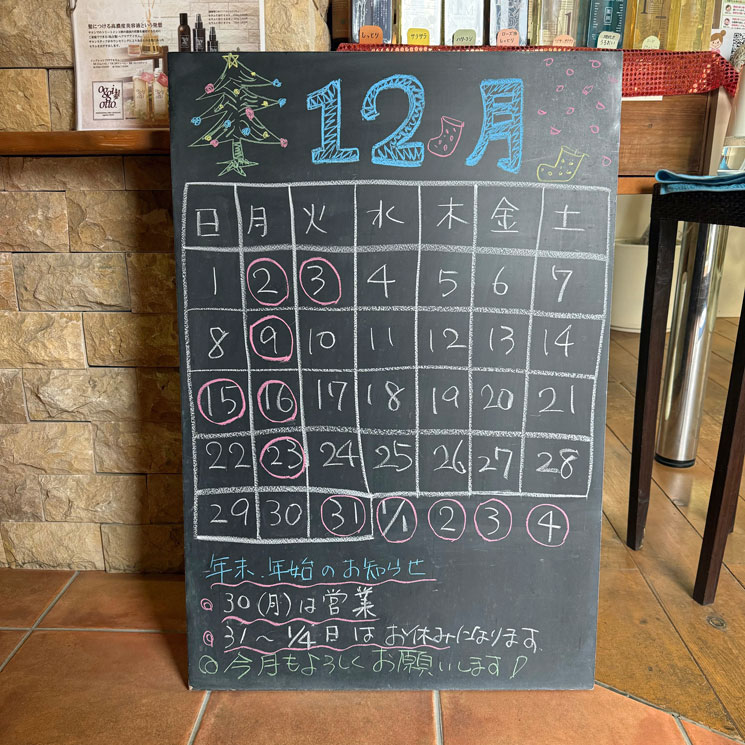 髪につける高濃度美容液という発想
Oggi
Otto
しっとり
サラサラ
12月
日 月 火 水 木 金 土
1 2 3 4 5 6 7
8 9 10 11 12 13 14
15 16 17 18 19 20 21
22 23 24 25 26 27 28
29 30 31 1/1 2 3 4
年末、年始のお知らせ
30(月)は営業
31～1/4日はお休みになります
今月もよろしくお願いします!